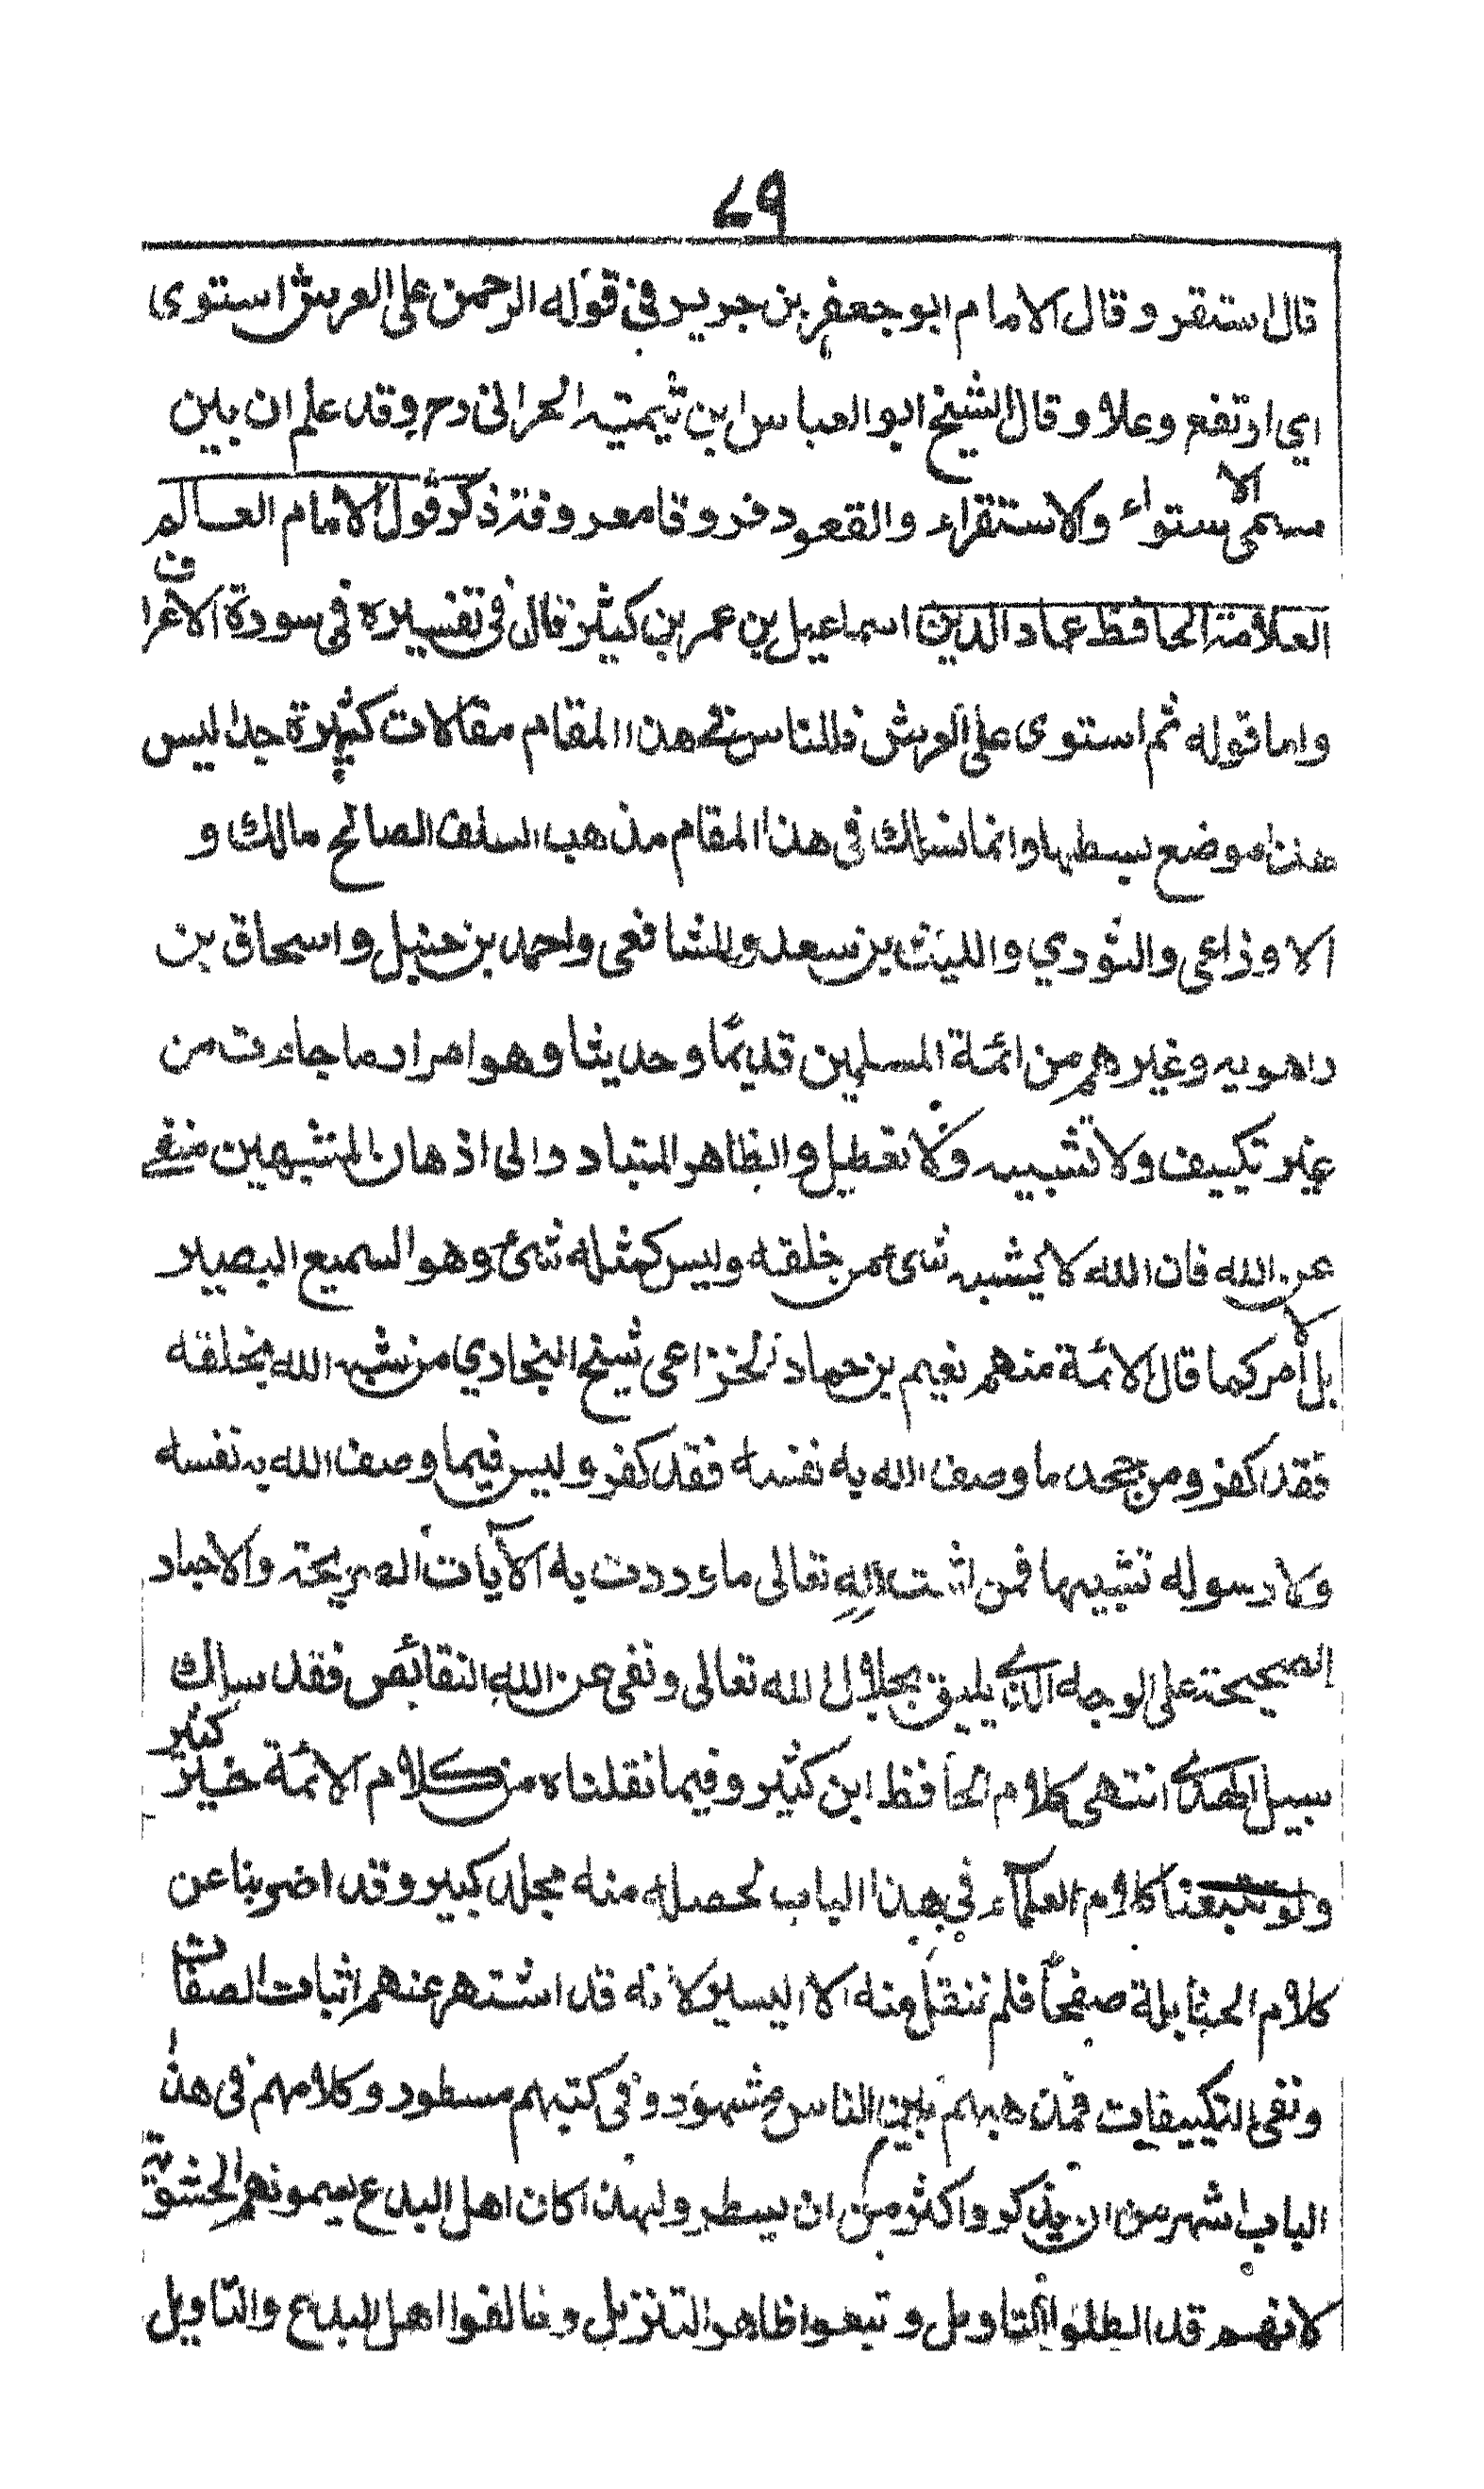 ٧٩
قال استقر وقال الامام ابو جعفر بن جرير في قوله الرحمن على العرش استوى
اي ارتفع وعلا وقال الشيخ ابو العباس ابن تيمية الحراني رح وقد علم ان بين
مسمى الاستواء والاستقراء والقعود فروقا معروفة ذكر قول الامام العالم
العلامة الحافظ عماد الدين اسماعيل بن عمر بن كثير قال في تفسيره في سورة الاعراف
واما قوله ثم استوى على العرش فللناس في هذا المقام مقالات كثيرة جدا ليس
هذا موضع بسطها وانما نسلك في هذا المقام مذهب السلف الصالح مالك و
الاوزاعي والثوري والليث بن سعد والشافعي واحمد بن حنبل واسحاق بن
راهويه وغيرهم من ائمة المسلمين قديما وحديثا وهو امرار ما جاءت من
غير تكييف ولا تشبيه ولا تعطيل والظاهر المتبادر الى اذهان المشبهين منفي
عن الله فان الله لا يشبه شئ من خلقه وليس كمثله شئ وهو السميع البصير
بل الامر كما قال الائمة منهم نعيم بن حماد الخزاعي شيخ البخاري من شبه الله بخلقه
فقد كفر ومن جحد ما وصف الله به نفسه فقد كفر وليس فيما وصف الله به نفسه
ولا رسوله تشبيها فمن اثبت لله تعالى ما وردت به الآيات الصريحة والاخبار
الصحيحة على الوجه الذي يليق بجلال الله تعالى ونفى عن الله النقائص فقد سلك
سبيل الهدى انتهى كلام الحافظ ابن كثير وفيما نقلناه من كلام الائمة خير كثير
ولو تتبعنا كلام العلماء في هذا الباب لحصل منه مجلد كبير وقد اضربنا عن
كلام الحنابلة صفحا فلم ننقل منه الا اليسير لانه قد اشتهر عنهم اثبات الصفات
ونفي التكييفات فمذهبهم بين الناس مشهور وفي كتبهم مسطور وكلامهم في هذا
الباب اشهر من ان يذكر واكثر من ان يسطر ولهذا كان اهل البدع يسمونهم الحشوية
لانهم قد ابطلوا التاويل وتبعوا ظاهر التنزيل وخالفوا اهل البدع والتاويل